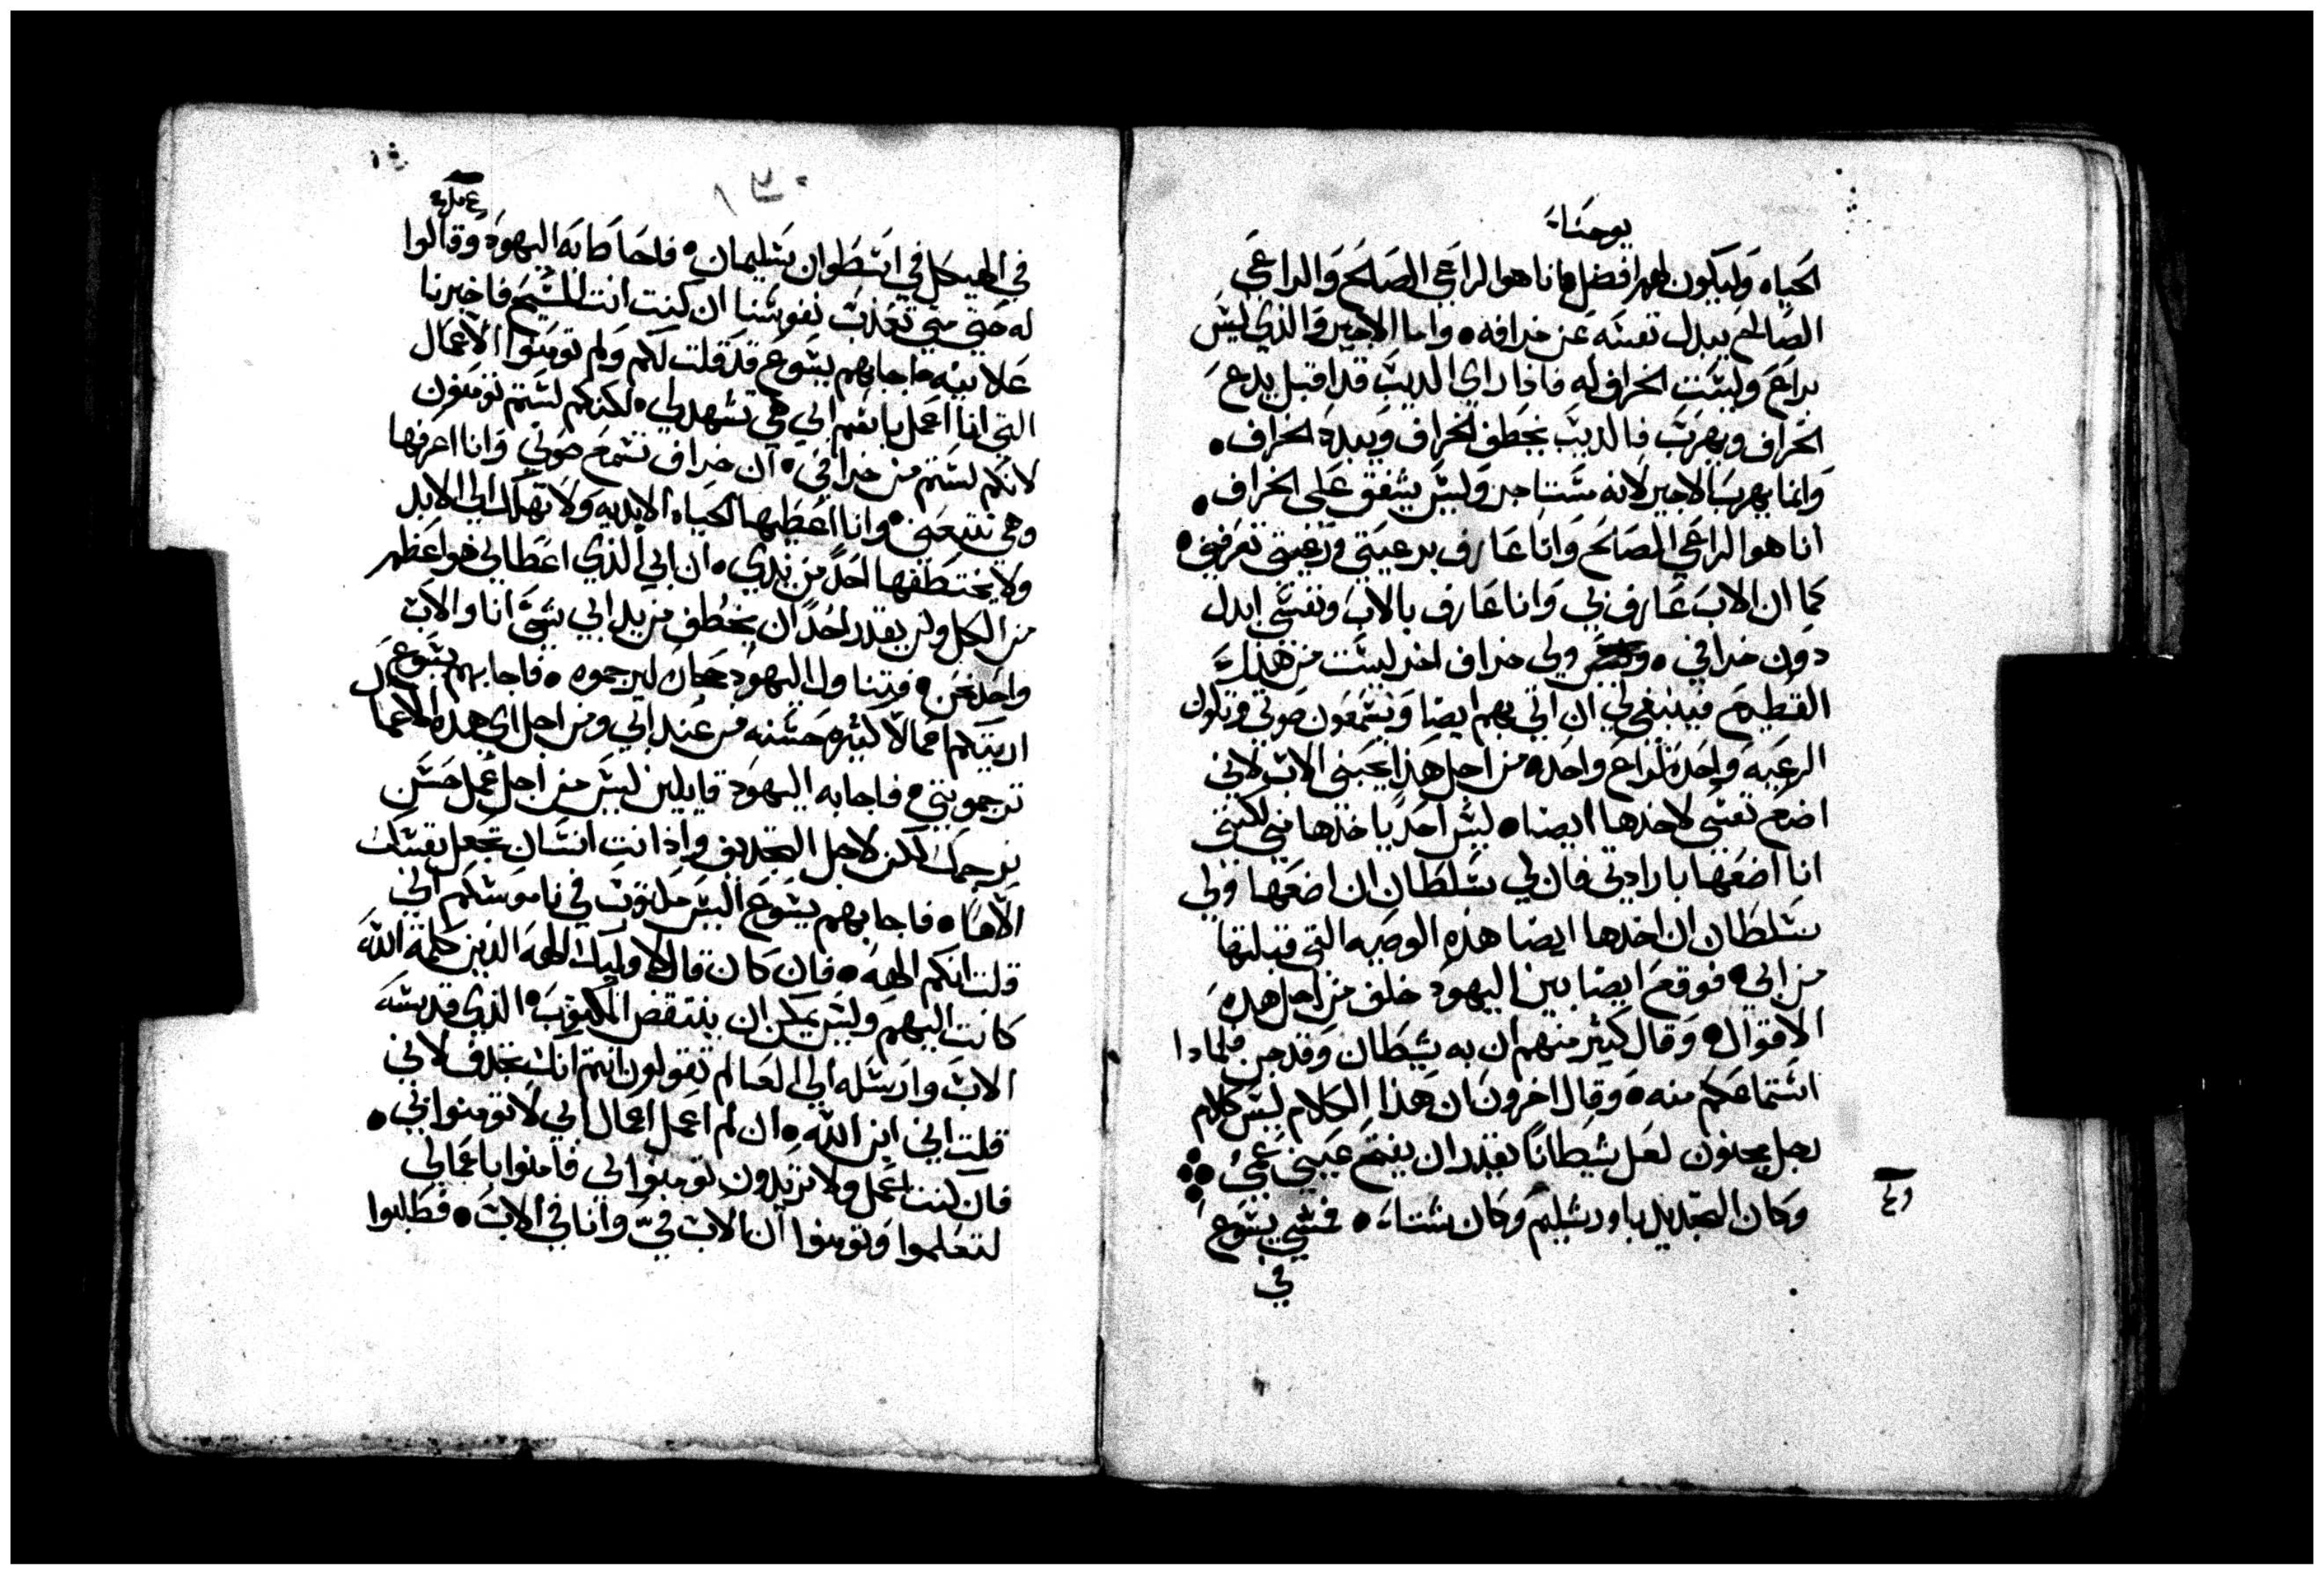 يوحنا
الحياه وليكون لهم افضل فانا هو الراعي الصالح والراعي
الصالح يبدل نفسه عن خرافه واما الاجير والذي ليس
براع وليست الخراف له فاذا راي الديب قد اقبل يدع
الخراف ويهرب فالديب يخطف الخراف ويبدد الخراف
وانما يهرب الاجير لانه مستاجر وليس يشفق على الخراف
انا هو الراعي الصالح وانا عارف برعيتي ورعيتي تعرفني
كما ان الاب عارف بي وانا عارف بالاب ونفسي ابدل
دون خرافي ولي خراف اخر ليست من هذا
القطيع فينبغي لي ان اتي بهم ايضا ويسمعون صوتي وتكون
الرعيه واحده لراع واحده من اجل هذا يحبني الاب لاني
اضع نفسي لاخذها ايضا ليس احد ياخذها مني لكنني
انا اضعها بارادتي فان لي سلطان ان اضعها ولي
سلطان ان اخذها ايضا هذه الوصيه التي قبلتها
من ابي فوقع ايضا بين اليهود خلف من اجل هذه
الاقوال وقال كثير منهم ان به شيطان وقد جن فلمادا
استماعكم منه وقال اخرون ان هذا الكلام ليس كلام
رجل مجنون لعل شيطانا يقدر ان يفتح عيني عمى
وكان التجديد باورشليم وكان شتاء فمشي يسوع
في
في الهيكل في اسطوان سليمان فاحاطا به اليهود وقالوا
له حتي متي تعذب نفوسنا ان كنت انت المسيح فاخبرنا
علانيه فاجابهم يسوع قد قلت لكم ولم تومنوا الاعمال
التي انا اعمل باسم ابي هي تشهد لي لكنكم لستم تومنون
لانكم لستم من خرافي ان خرافي تسمع صوتي وانا اعرفها
وهي تتبعني وانا اعطيها الحياه الابديه ولا تهلك الي الابد
ولا يختطفها احد من يدي ان ابي الذي اعطاني هو اعظم
من الكل ولن يقدر احد ان يخطف من يد ابي شي انا والاب
واحد نحن فتناول اليهود حجاره ليرجموه فاجابهم يسوع
اريتكم اعمالا كثيره حسنه من عند ابي ومن اجل اي هذه الاعمال
ترجموني فاجابه اليهود قايلين ليس من اجل عمل حسن
نرجمك لكن لاجل التجديف واذ انت انسان تجعل نفسك
الاها فاجابهم يسوع اليس مكتوب في ناموسكم اني
قلت انكم الهه فان كان قال لاوليك الهه الذين كلمة الله
كانت اليهم وليس يمكن ان ينتقض المكتوب الذي قدسه
الاب وارسله الي العالم تقولون انتم انك تجدف لاني
قلت اني ابن الله ان لم اعمل اعمال ابي لا تومنوا بي
فان كنت اعمل ولا تريدون تومنوا بي فامنوا باعمالي
لتعلموا وتومنوا ان الاب في وانا في الاب فطلبوا